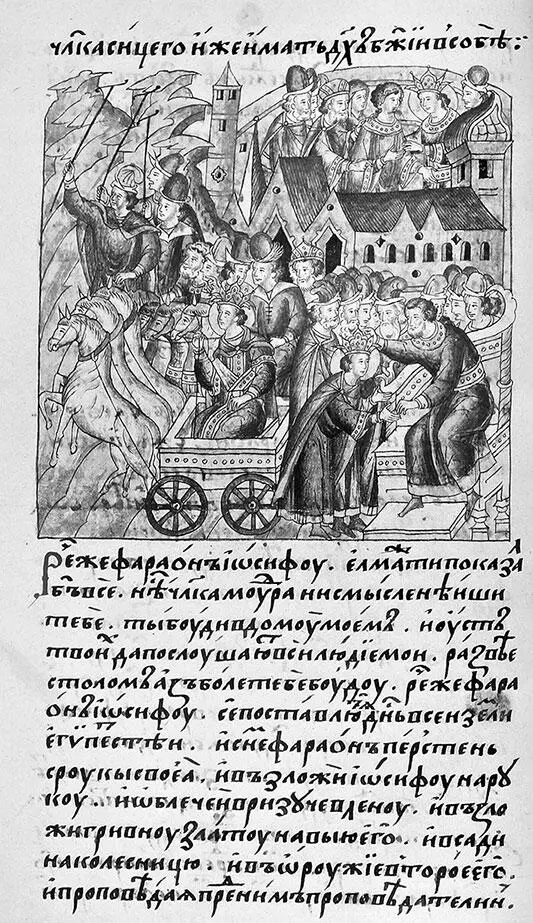 чл҃ка сицего иже имать дх҃ъ бж҃іи въ собѣ :
Рч҃е же фараѡнъ іѡсифоу . елма ти показа
бг҃ъ все . нѣⷭ҇ чл҃ка моудра ни смысленѣиши
тебе . ты боуди в домоу моемъ . и оустъ
твоиⷯ да послоушаюⷮ вси людїе мои . развѣе
столомъ азъ боле тебе боудоу . рч҃е же фара
ѡнъ іѡсифоу . се поставлю тѧ днⷭ҇ь всеи земли
егѵпестѣи . и снеⷨ фараѡнъ перстень
с роукы своеѧ . и възложи іѡсифоу на ру
коу . и ѡблече и в ризу чевленоу . и възло
жи гривноу златоу на выю его . и всади
на колесницю . и въ ѡроужїе второе его .
и проповѣдаѧ преⷣ нимъ проповѣдателии .